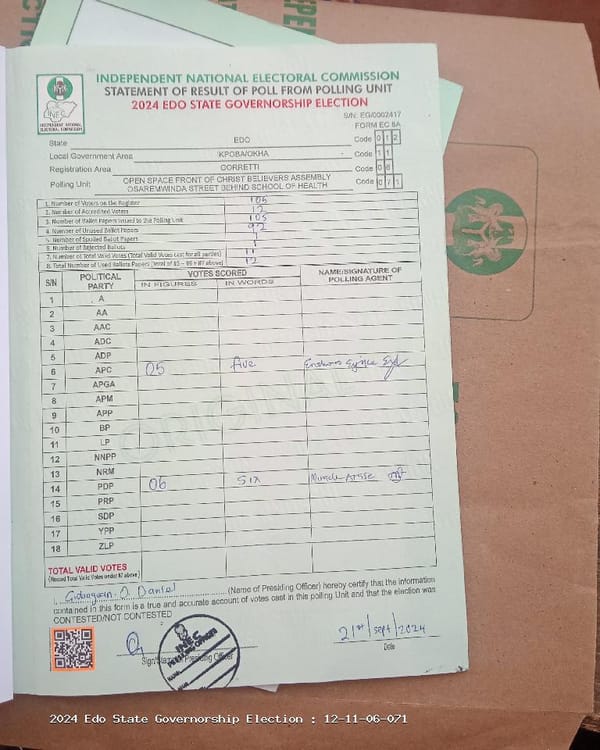 INDEPENDENT NATIONAL ELECTORAL COMMISSION
STATEMENT OF RESULT OF POLL FROM POLLING UNIT
2024 EDO STATE GOVERNORSHIP ELECTION
INEC
INDEPENDENT NATIONAL
ELECTORAL COMMISSION
S/N: EG/0002417
FORM EC 8A
State EDO Code 0 1 2
Local Government Area IKPOBA/OKHA Code 1 1
Registration Area GORRETTI Code 0 6
Polling Unit OPEN SPACE FRONT OF CHRIST BELIEVERS ASSEMBLY OSAREMWINDA STREET BEHIND SCHOOL OF HEALTH Code 0 7 1
1. Number of Voters on the Register 105
2. Number of Accredited Voters 12
3. Number of Ballot Papers Issued to the Polling Unit 105
4. Number of Unused Ballot Papers 92
5. Number of Spoiled Ballot Papers
6. Number of Rejected Ballots 1
7. Number of Total Valid Votes (Total Valid Votes cast for all parties) 11
8. Total Number of Used Ballot Papers (Total of #5 + #6 + #7 above) 12
S/N POLITICAL PARTY VOTES SCORED NAME/SIGNATURE OF POLLING AGENT
IN FIGURES IN WORDS
1 A
2 AA
3 AAC
4 ADC
5 ADP
6 APC 05 five
7 APGA
8 APM
9 APP
10 BP
11 LP
12 NNPP
13 NRM
14 PDP 06 SIX
15 PRP
16 SDP
17 YPP
18 ZLP
TOTAL VALID VOTES
(Record Total Valid Votes under #7 above)
I, O Daniel (Name of Presiding Officer) hereby certify that the information
contained in this form is a true and accurate account of votes cast in this polling Unit and that the election was
CONTESTED/NOT CONTESTED
INEC
PRESIDING OFFICER
Sign/Stamp of Presiding Officer
21st/Sept/2024
Date
2024 Edo State Governorship Election : 12-11-06-071